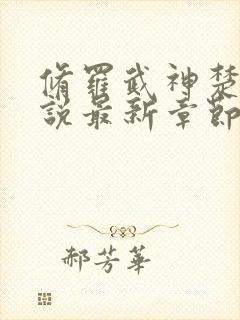 脩羅武神楚
說最新章節
郝芳華